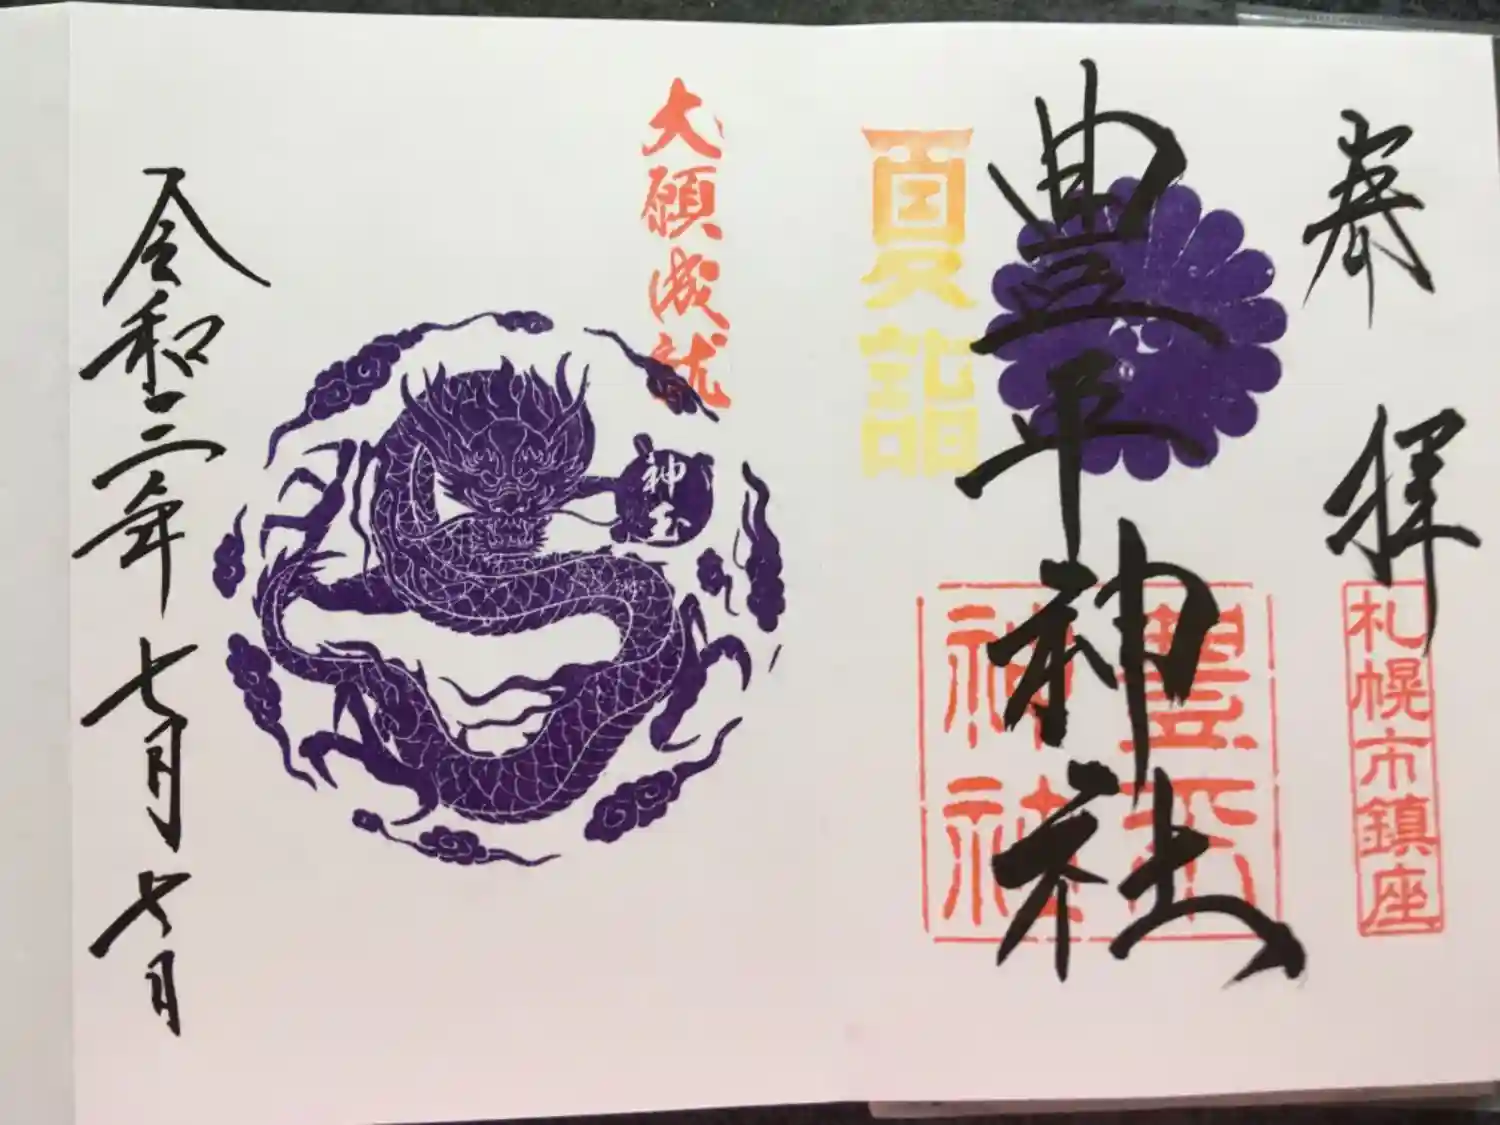 奉拝
札幌市鎮座
豊平神社
豊平
神社
夏詣
大願成就
神玉
令和三年七月七日